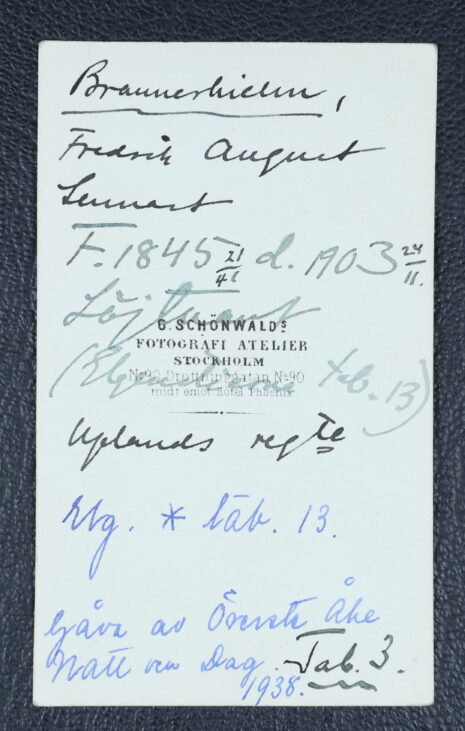 Braunerhielm,
Fredrik August
Lennart
F. 1845 21/4 d. 1903 24/11.
Löjtnant
G. SCHÖNWALDS
FOTOGRAFI ATELIER
STOCKHOLM
Nº90 Drottninggatan Nº90
midt emot Hotel Phoenix
(Elgenstierna tab. 13)
Uplands regte
Etg. * tab. 13.
Gåva av Överste Åke
Natt och Dag. Tab. 3.
1938.